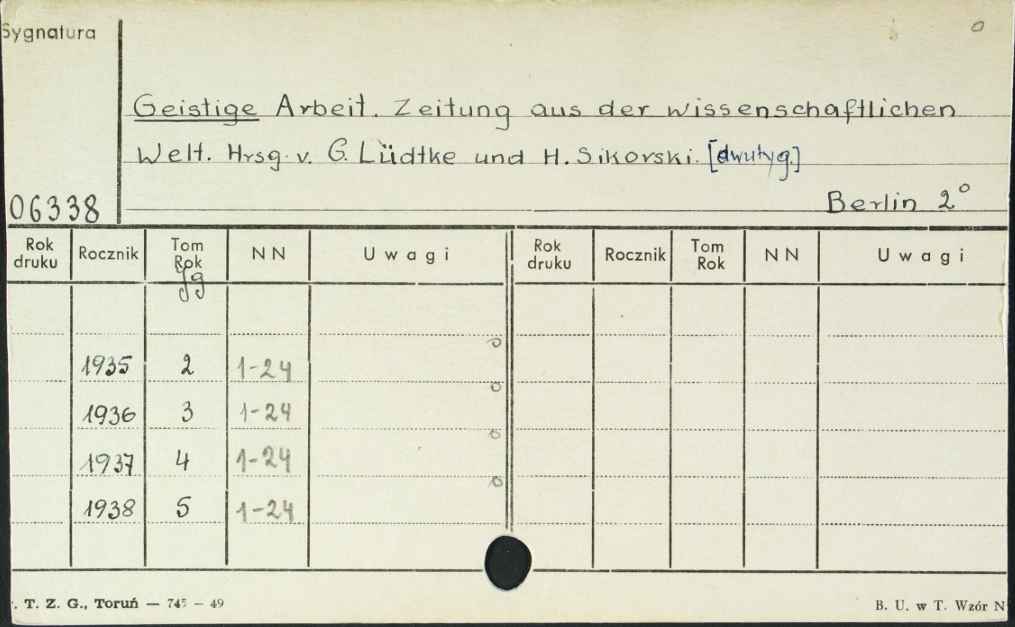 Sygnatura
Geistige Arbeit. Zeitung aus der wissenschaftlichen
Welt. Hrsg. v. G. Lüdtke und H. Sikorski. [dwutyg.]
06338 Berlin 2°
Rok druku Rocznik Tom Rok NN Uwagi Rok druku Rocznik Tom Rok NN Uwagi
Jg
1935 2 1-24
1936 3 1-24
1937 4 1-24
1938 5 1-24
. T. Z. G., Toruń — 745 — 49 B. U. w T. Wzór N